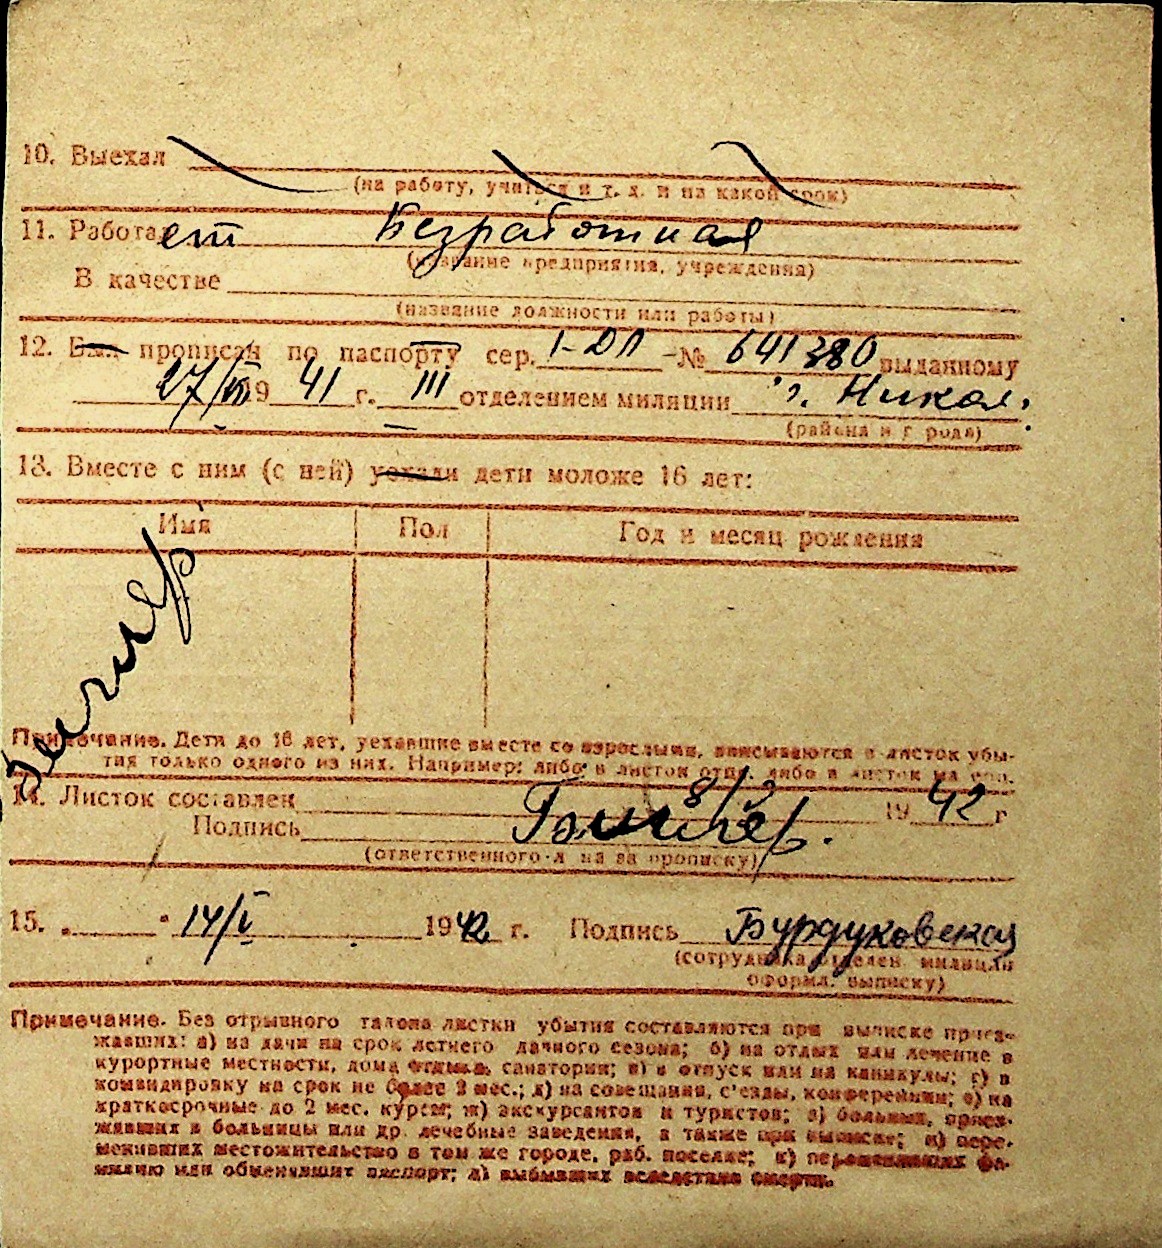 10. Выехал
(на работу, учиться и т. д. и на какой срок)
11. Работает Безработная
(название предприятия, учреждения)
В качестве
(название должности или работы)
12. Был прописан по паспорту сер. I-ДЛ № 641380 выданному
27/VII 1941 г. III отделением милиции г. Никол.
(района и города)
13. Вместе с ним (с ней) уехали дети моложе 16 лет:
Имя Пол Год и месяц рождения
Примечание. Дети до 16 лет, уехавшие вместе со взрослыми, вписываются в листок убы-
тия только одного из них. Например: либо в листок отца, либо в листок
14. Листок составлен 1942 г
Подпись
(ответственного л на за прописку)
15. " 14/V 1942 г. Подпись Бурдуковская
(сотрудника отделен. милиции
оформл. выписку)
Примечание. Без отрывного талона листки убытия составляются при выписке приез-
жавших: а) на дачи на срок летнего дачного сезона; б) на отдых или лечение в
курортные местности, дома отдыха, санатории; в) в отпуск или на каникулы; г) в
командировку на срок не более 2 мес.; д) на совещания, с'езды, конференции; е) на
краткосрочные до 2 мес. курсы; ж) экскурсантов и туристов; з) больных, приез-
жавших в больницы или др. лечебные заведения, а также при выписке; и) пере-
менивших местожительство в том же городе, раб. поселке; к) переменивших фа-
милию или обменявших паспорт; л) выбывших вследствие смерти.